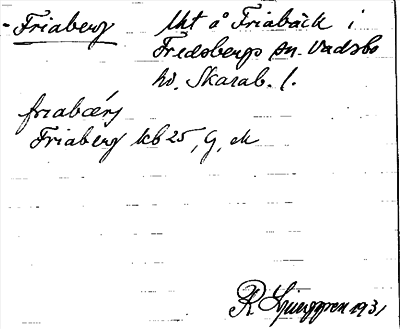 - Friaberg lht å Friabäck i
Fredsbergs sn. Vadsbo
hd. Skarab. l.
friabærj
Friaberg kb 25, G, M
R Ljunggren 1931